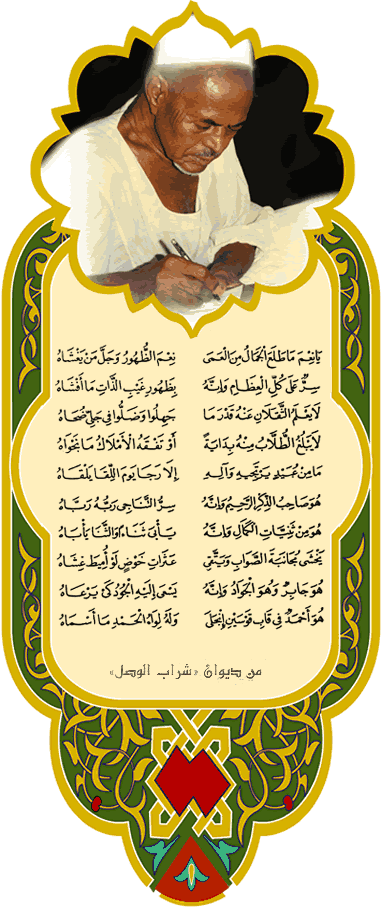 يَا نِعْمَ مَا طَلَعَ الجَمَالُ مِنَ العَمَى نِعْمَ الظُّهُورُ وَجَلَّ مَنْ يَغْشَاهُ
سِرٌّ عَلَى كُلِّ العِظَامِ وَإِنَّهُ بِظُهُورِ غَيْبِ الذَّاتِ مَا أَفْشَاهُ
لَا يَعْلَمُ الثَّقَلَانِ عَنْهُ قَدْرَ مَا جَهِلُوا وَضَلُّوا فِي جَلِيِّ ضُحَاهُ
لَا يَبْلُغُ الطُّلَّابُ مِنْهُ بِدَايَةً أَوْ تَفْقَهُ الأَمْلَاكُ مَا نَجْوَاهُ
مَا مِنْ عُبَيْدٍ يَرْتَجِيهِ وَآلِهِ إِلَّا رَجَا يَوْمَ اللِّقَا يَلْقَاهُ
هُوَ صَاحِبُ الذِّكْرِ الرَّحِيمُ وَإِنَّهُ سِرُّ النَّاجِي رَبُّهُ رَبَّاهُ
هُوَ مِنْ ثَنِيَّاتِ الكَمَالِ وَإِنَّهُ يَأْبَى ثَنَاءً وَالثَّنَا يَأْبَاهُ
يَخْشَى مُجَانَبَةَ الصَّوَابِ وَيَتَّقِي عَثَرَاتِ خَوْضٍ لَوْ أُمِيطَ غِشَاهُ
هُوَ جَابِرٌ وَهُوَ الجَوَادُ وَإِنَّهُ يَسْعَى إِلَيْهِ الجُودُ كَيْ يَرْعَاهُ
هُوَ أَحْمَدٌ فِي قَابِ قَوْسَيْنِ انْجَلَى وَلَهُ لِوَاءُ الحَمْدِ مَا أَسْمَاهُ
من ديوان «شراب الوصل»